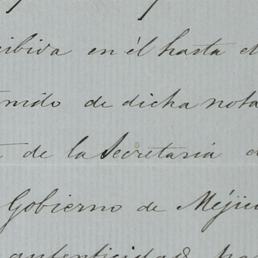 cibida en él hasta el
de dicha nota
de la Secretaría
Gobierno de Méji
autenticidad